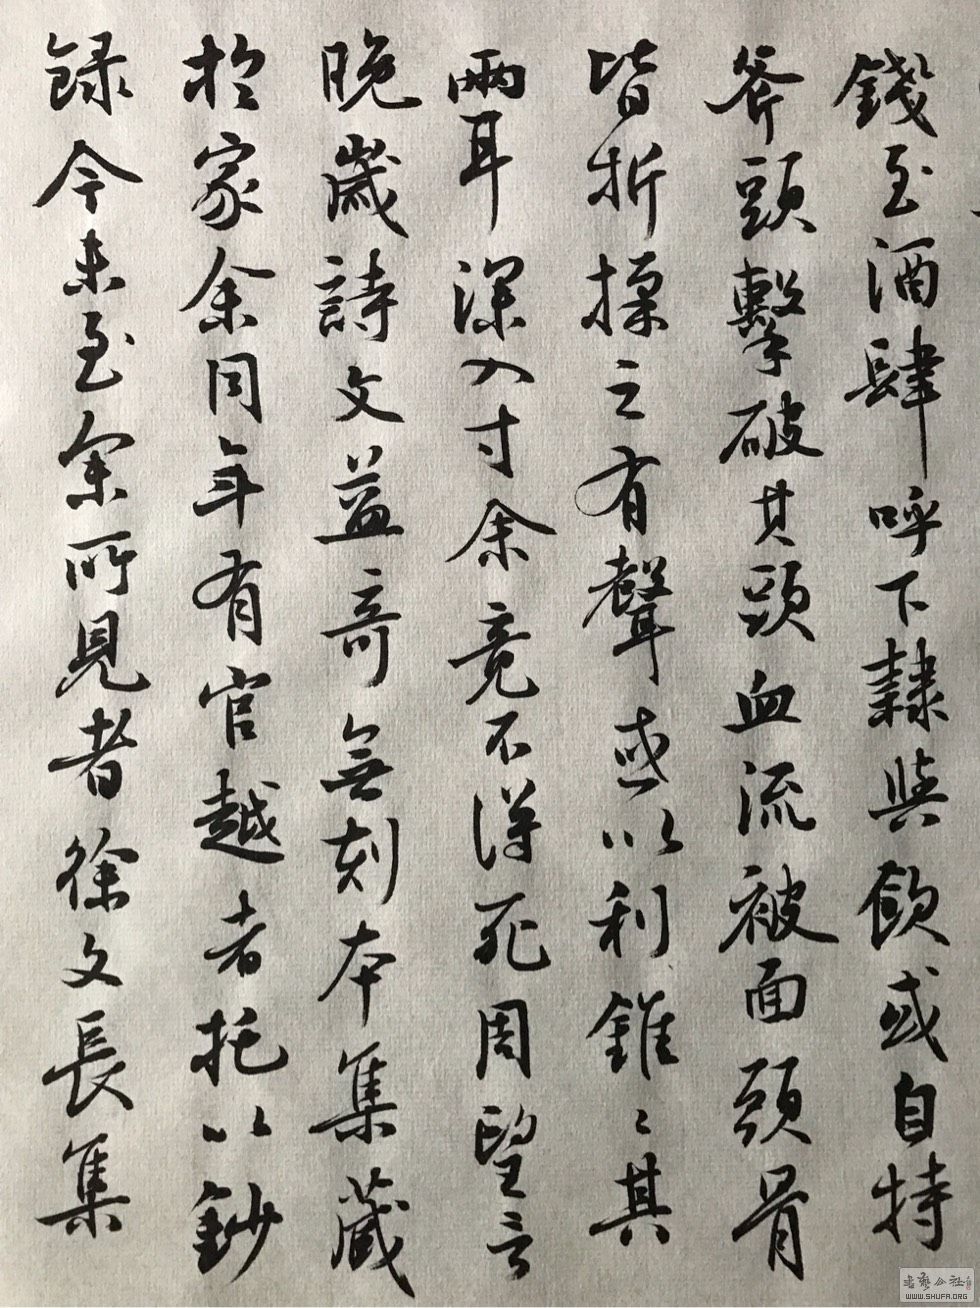 錢至酒肆呼下隸與飲或自持
斧頭擊破其頭血流被面頭骨
皆折揉之有聲或以利錐錐其
兩耳深入寸余竟不得死周望言
晚歲詩文益奇無刻本集藏
於家余同年有官越者托以鈔
錄今未至余所見者徐文長集
書藝公社
WWW.SHUFA.ORG